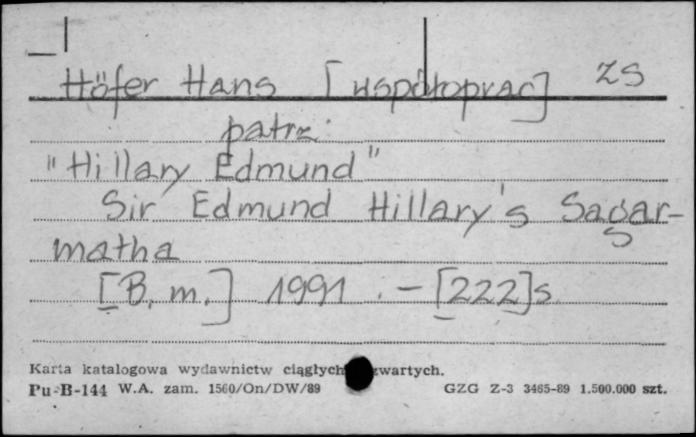 Höfer Hans [współoprac] ZS
patrz:
"Hillary Edmund"
Sir Edmund Hillary's Sagar-
matha
[B. m.] 1991. - [222]s.
Karta katalogowa wydawnictw ciągłych zwartych.
Pu-B-144 W.A. zam. 1560/On/DW/89 GZG Z-3 3465-89 1.500.000 szt.